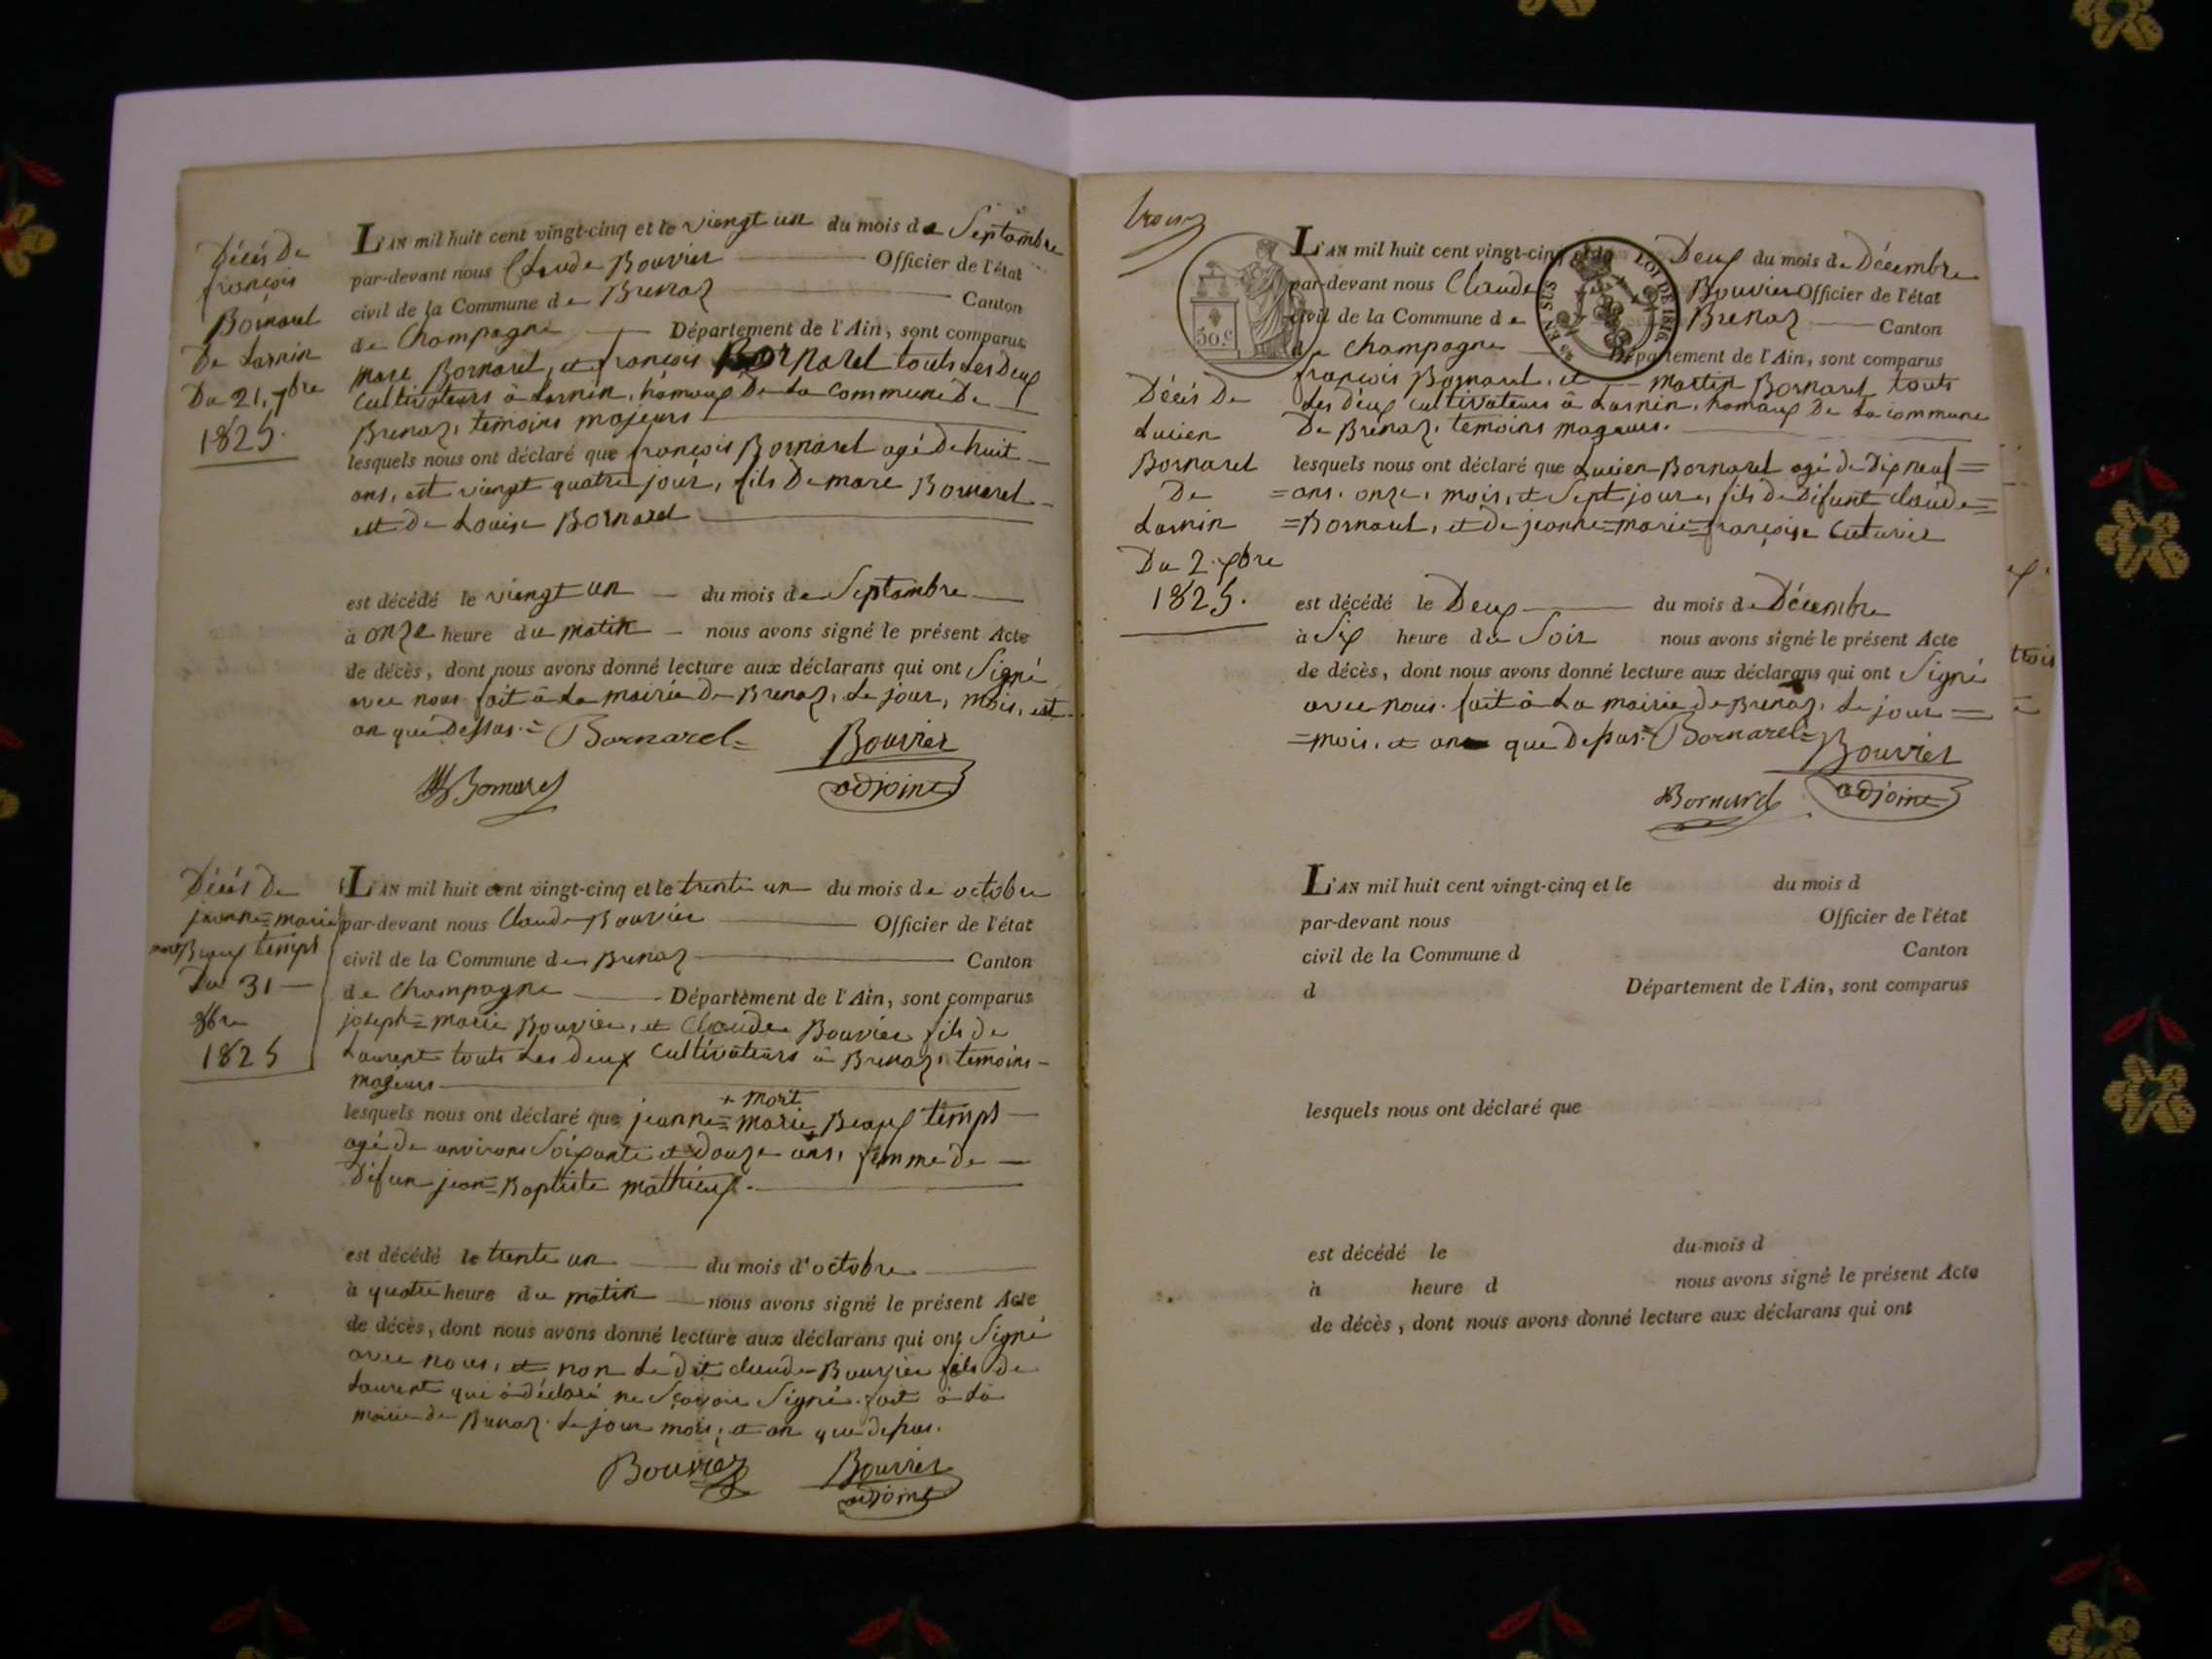 Décès De
françois
Bornarel
De Larnin
Du 21, 7bre
1825.
L'AN mil huit cent vingt-cinq et le viengt un du mois de Septembre
par-devant nous Claude Bouvier Officier de l'état
civil de la Commune de Brenaz Canton
de Champagne Département de l'Ain, sont comparus
Marc Bornarel, et françois Bornarel touts Les Deux
Cultivateurs à Larnin, hámaux De La Commune De
Brenaz, temoins majeurs
lesquels nous ont déclaré que françois Bornarel agé De huit
ans, est viengt quatre jour, fils De marc Bornarel
est De Louise Bornarel
est décédé le viengt un du mois de Septembre
à onze heure du matin nous avons signé le présent Acte
de décès, dont nous avons donné lecture aux déclarans qui ont Signé
avec nous fait à La mairie De Brenaz, Le jour, mois, est
an que Dessus. = Bornarel = Bouvier
Bornarel adjoint
Décès De
jeanne = marie
mort Beaux temps
Du 31
8bre
1825
L'AN mil huit cent vingt-cinq et le trente un du mois de octobre
par-devant nous Claude Bouvier Officier de l'état
civil de la Commune de Brenaz Canton
de Champagne Département de l'Ain, sont comparus
joseph = marie Bouvier, et Claude Bouvier fils De
Laurent touts Les deux Cultivateurs à Brenaz, temoins
majeurs
+ mort
lesquels nous ont déclaré que jeanne = marie + Beaux temps
agé De environ Soixante et Douze ans, femme De
Défun jean = Baptiste mathieux.
est décédé le trente un du mois d'octobre
à quatre heure du matin nous avons signé le présent Acte
de décès, dont nous avons donné lecture aux déclarans qui ont Signé
avec nous, et non Le Dit Claude Bouvier fils De
Laurent qui à déclaré ne Sçavoir Signé. fait à La
mairie De Brenaz. Le jour mois, et an que Depus.
Bouvier Bouvier
adjoint
trois
50 C
EN SUS LOI DE 1816
L'AN mil huit cent vingt-cinq et le Deux du mois de Décembre
par-devant nous Claude Bouvier Officier de l'état
civil de la Commune de Brenaz Canton
de Champagne Département de l'Ain, sont comparus
françois Bornarel, et martin Bornarel touts
Les deux cultivateurs à Larnin, hamaux De La commune
De Brenaz, temoins mageurs.
Décès De
Lucien
Bornarel
De
Larnin
Du 2. xbre
1825.
lesquels nous ont déclaré que Lucien Bornarel agé De Dix neuf =
= ans, onze, mois, et Sept jours, fils De Défunt claude =
= Bornarel, et De jeanne = marie = françoise Cuturié
est décédé le Deux du mois de Décembre
à Six heure du Soir nous avons signé le présent Acte
de décès, dont nous avons donné lecture aux déclarans qui ont Signé
avec nous. fait à La mairie De Brenaz, Le jour =
= mois, et an que Depus. = Bornarel = Bouvier
Bornarel adjoint
trois
L'AN mil huit cent vingt-cinq et le du mois d
par-devant nous Officier de l'état
civil de la Commune d Canton
d Département de l'Ain, sont comparus
lesquels nous ont déclaré que
est décédé le du mois d
à heure d nous avons signé le présent Acte
de décès, dont nous avons donné lecture aux déclarans qui ont